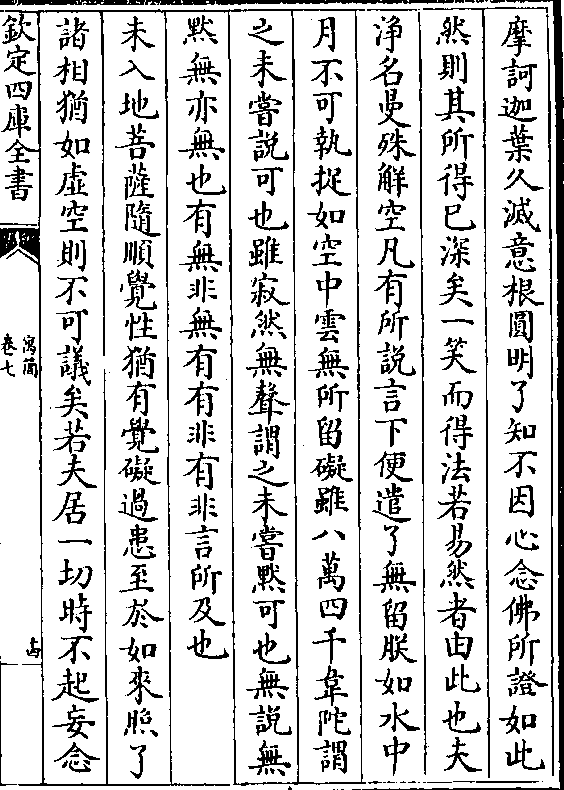 摩訶迦葉久滅意根圓明了知不因心念佛所證如此
然則其所得已深矣一笑而得法若易然者由此也夫
淨名曼殊解空凡有所說言下便遣了無留朕如水中
月不可執捉如空中雲無所留礙雖八萬四千韋陀謂
之未嘗說可也雖寂然無聲謂之未嘗黙可也無說無
黙無亦無也有無非無有有非有非言所及也
未入地菩薩隨順覺性猶有覺礙過患至於如來照了
諸相猶如虛空則不可議矣若夫居一切時不起妄念
欽定四庫全書
寓簡
卷七